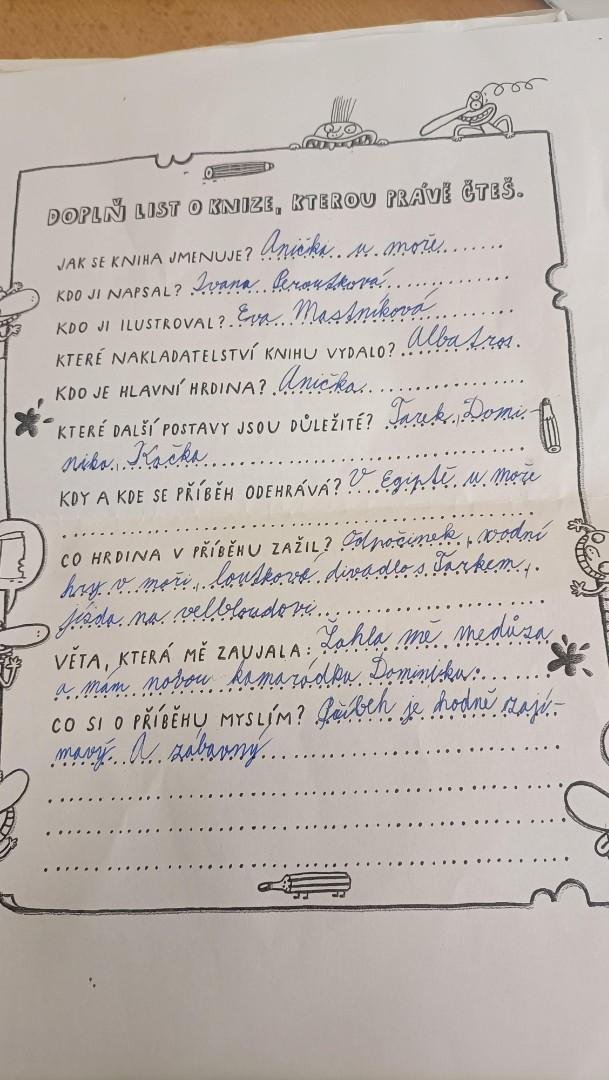 DOPLŇ LIST O KNIZE, KTEROU PRÁVĚ ČTEŠ.
JAK SE KNIHA JMENUJE? Anička u moře
KDO JI NAPSAL? Ivana Peroutková
KDO JI ILUSTROVAL? Eva Mastníková
KTERÉ NAKLADATELSTVÍ KNIHU VYDALO? Albatros.
KDO JE HLAVNÍ HRDINA? Anička
KTERÉ DALŠÍ POSTAVY JSOU DŮLEŽITÉ? Tarek, Domi-
nika, Kačka
KDY A KDE SE PŘÍBĚH ODEHRÁVÁ? V Egiptě u moře
CO HRDINA V PŘÍBĚHU ZAŽIL? Odpočinek, vodní
hry v moři, loutkové divadlo s Tarkem,
jísda na velbloudovi
VĚTA, KTERÁ MĚ ZAUJALA: Žahla mě medůza
a mám novou kamarádku Dominiku.
CO SI O PŘÍBĚHU MYSLÍM? Příbeh je hodně zají-
mavý. A zábavný